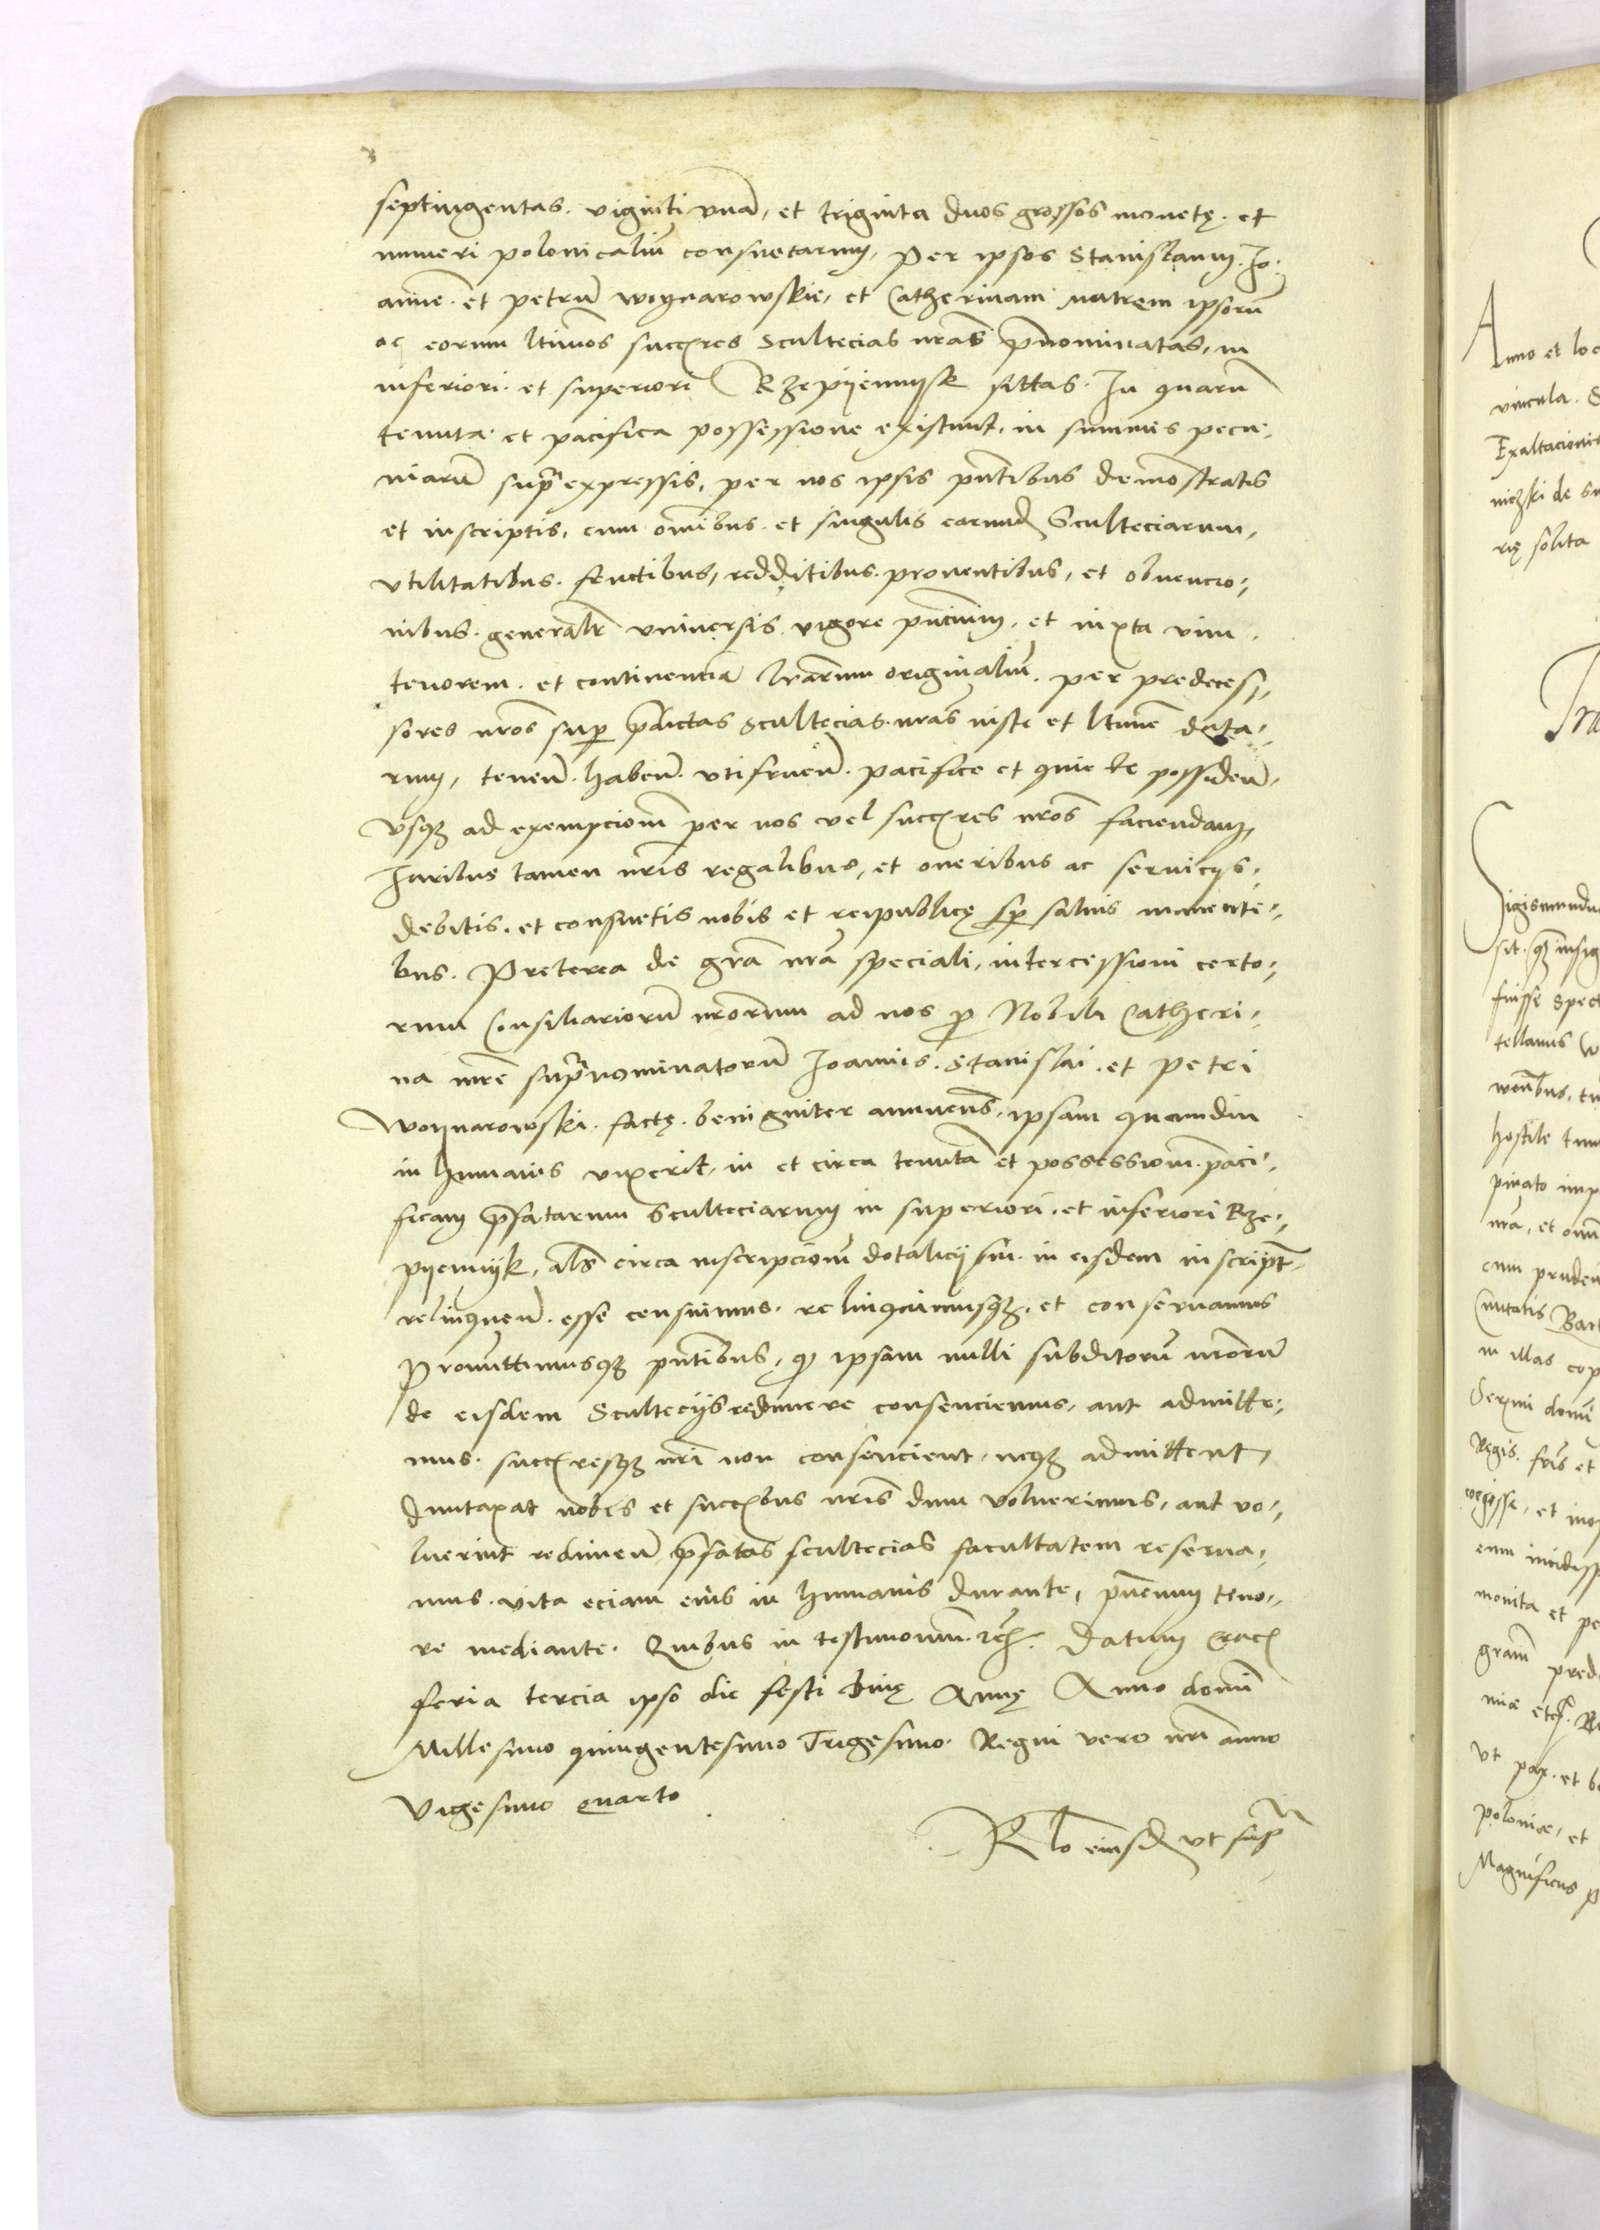 septingentas. viginti vnā, et triginta duos grossos monetę. et
numeri polonicaliū consuetarum, Per ipsos Stanislaum. Io.
anne. et petrū woynarowskie, et Catherinam matrem ipsorū
ac eorum ltimos succres Scultecias nras pnominatas, in
inferiori. et superiori Rzepiyennysk sittas. In quarū
tenuta. et pacifica possessione existunt, in summis pecu,
niarū supra expressis, per nos ipsis pntibus demonstratis
et inscriptis, cum omibus. et singulis earumd Sculteciarum,
vtilitatibus. fructibus, redditibus. prouentibus, et obuencio,
nibus. generalr vniuersis vigore pncium, et iuxta vim.
tenorem. et continencia lrarum originaliū. per predeces,
sores nros super pdictas scultecias. nras iuste et ltime data,
rum, tenen. haben. vtifruen. pacifice et quiete possiden,
vsqz ad exempcionem per nos vel succres nros faciendam,
Iuribus tamen nris regalibus, et oneribus ac seruicys,
debitis. et consuetis nobis et reipublicę sp saluis manente,
bus. Preterea de gra nra speciali, intercessioni certo,
rum Consiliariorū nrorum ad nos p Nobili Catheri,
na mre supranominatorū Ioannis. Stanislai. et Petri
Woynarowski. factę. benigniter annuens, ipsam quamdiu
in humanis vixerit, in et circa tenuta et possessionem. paci,
ficam pfatarum Sculteciarum in superiori. et inferiori Rze,
pyennyk, als circa inscripcionem dotalicij sui. in eisdem inscript.
relinquen. esse censuimus. relinquimusqz. et conseruamus
Promittimusqz pntibus, qz ipsam nulli subditorū nrorū
de eisdem Scultecijs redimere consenciemus, aut admitte,
mus. succresqz nri non consencient, neqz admittent,
duntaxat nobis et succribus nris dum voluerimus, aut vo,
luerint redimen pfatas scultecias facultatem reserua,
mus. vita eciam eius in humanis durante, pncium teno,
re mediante. Quibus in testimonium. etc. Datum Crac
feria tercia ipso die festi diuę Annę Anno domi
Millesimo quingentesimo Trigesimo. Regni vero nri anno
vigesimo quarto
Rlo eiusd vt supra
Anno et loc
vincula. S
Exaltacionis
niczki de
rię solita
Tra
Sigismundu
sit. qz insig
fuisse spect
tellanus w
hostile
pinato imp
nra, et omn
cum pruden
Ciuitatis Bar
in illas cop
Sermi domi
Regis. fris et
eum incidiss
monita et pe
gram pred
niæ etc. Re
vt pax. et b
poloniæ, et
Magnificus p